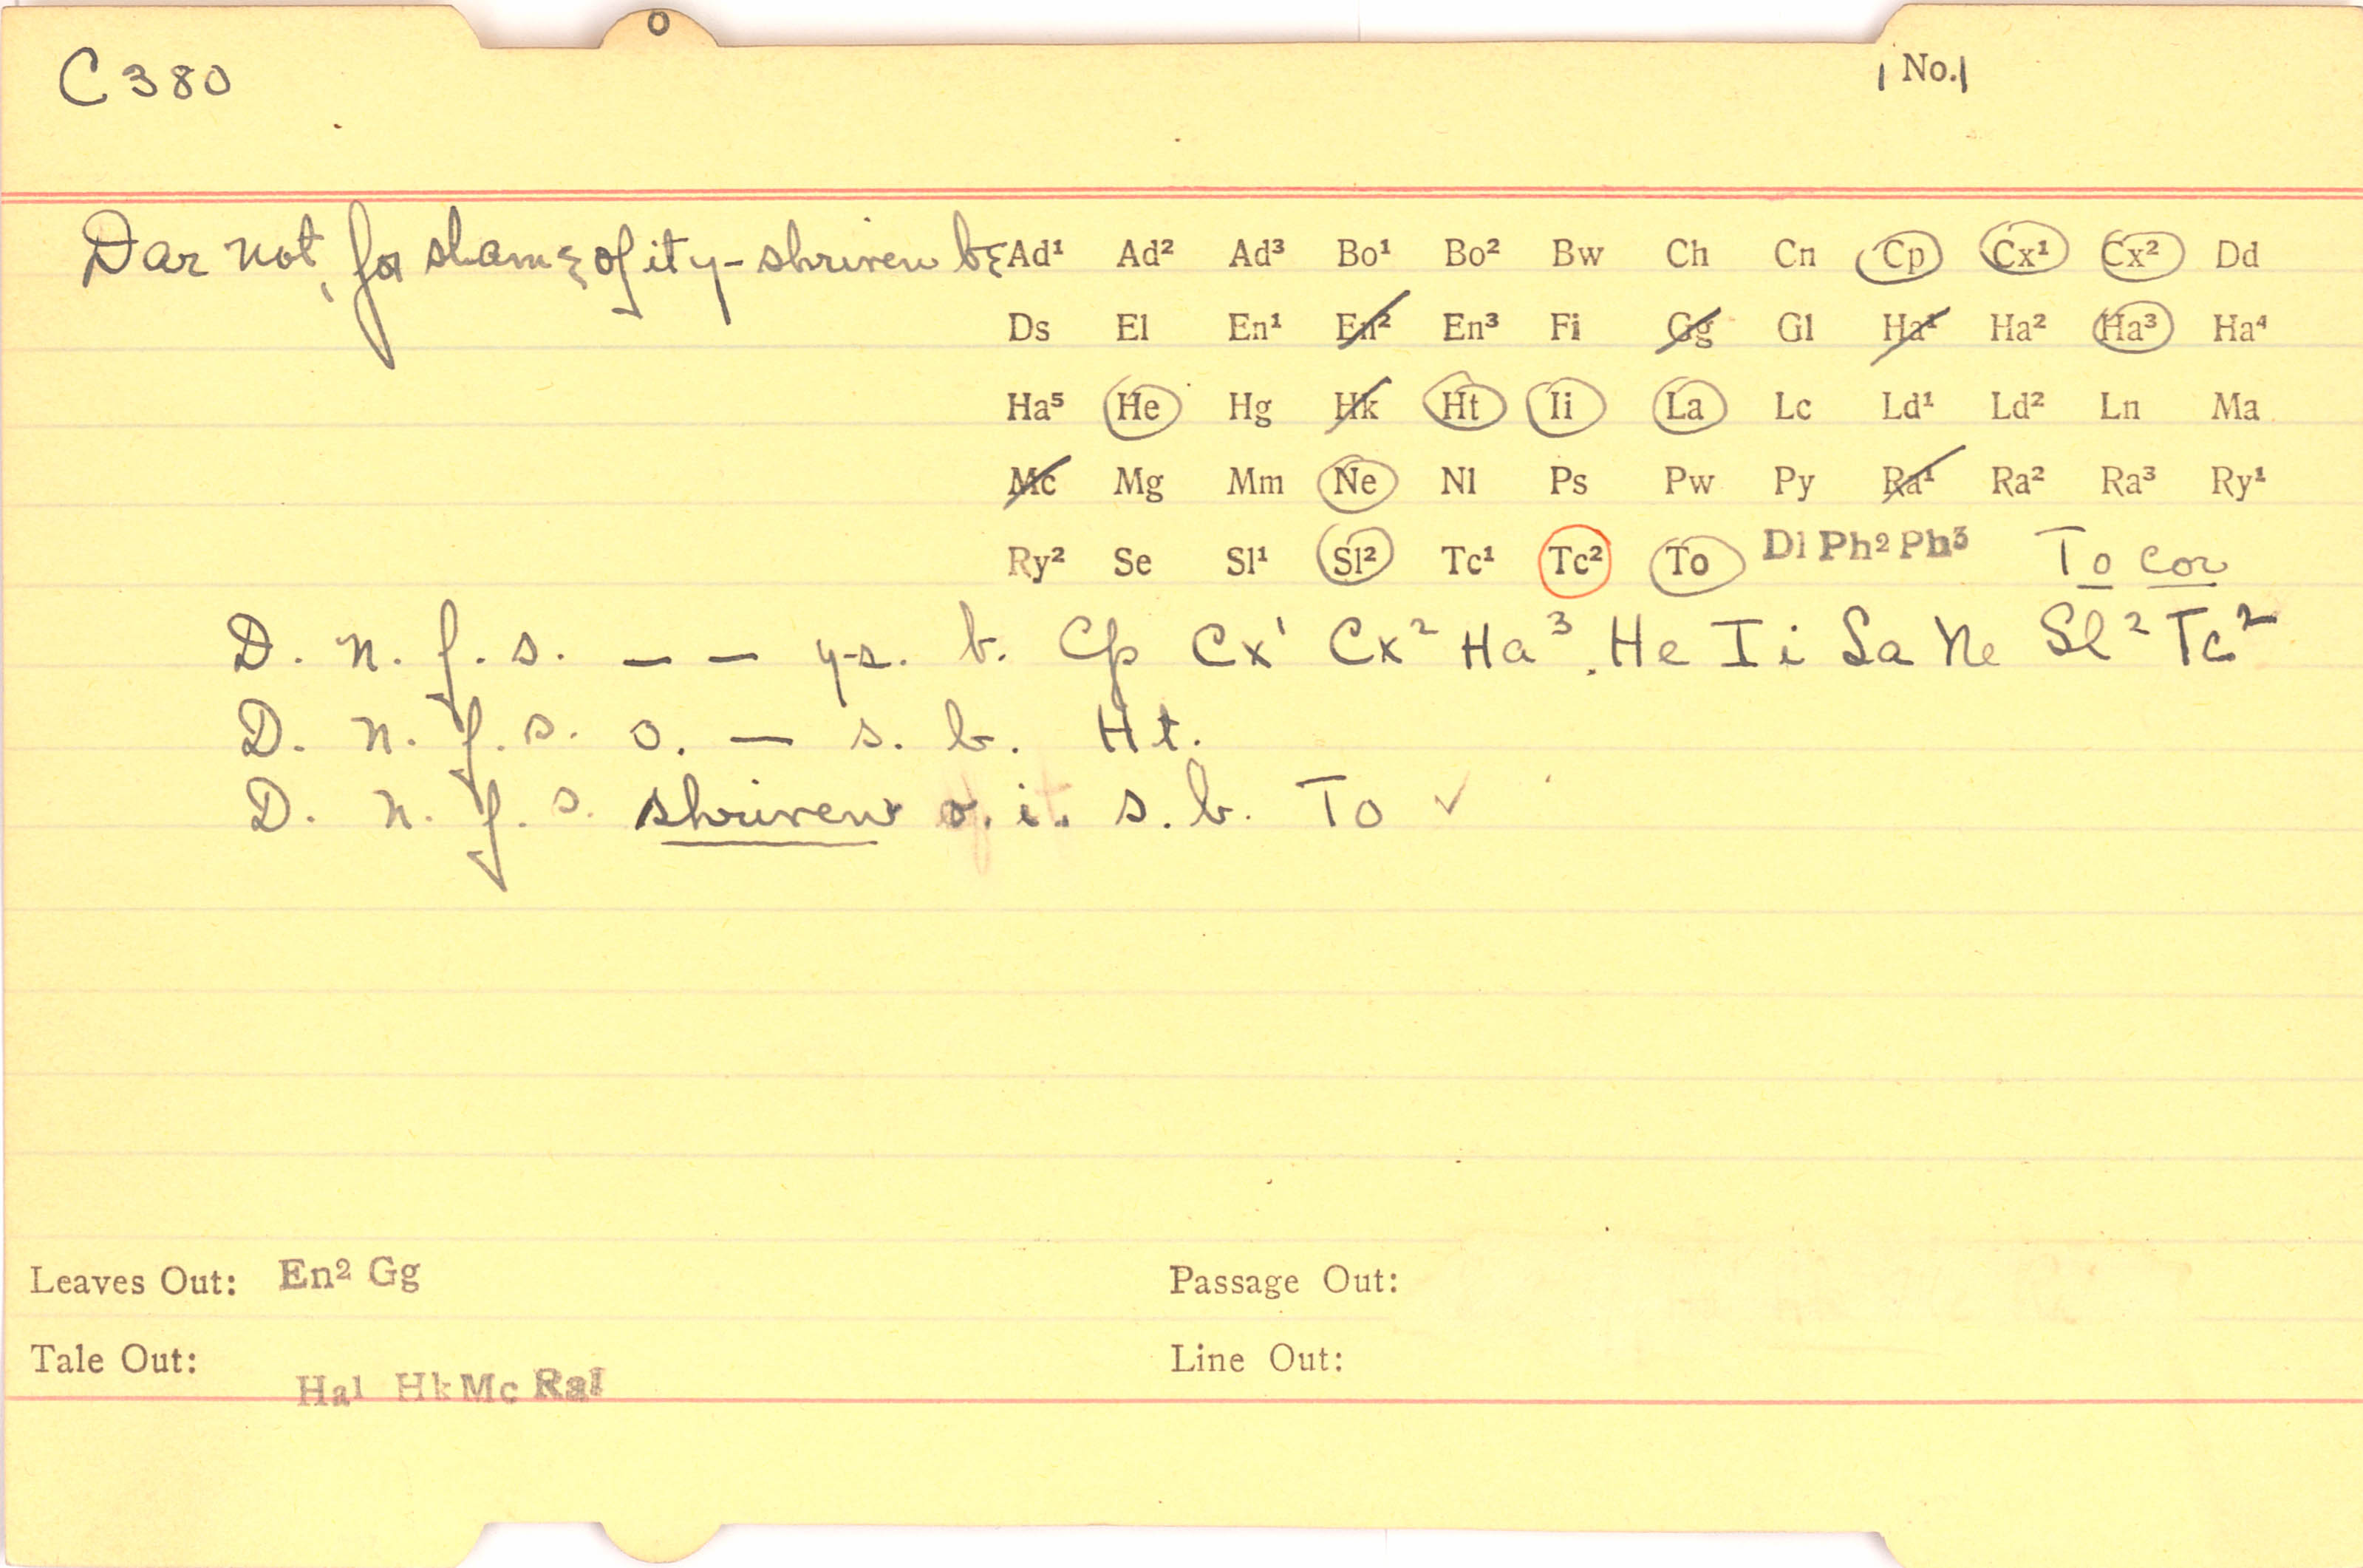 O
C 380
1 No. 1
Dar not, for shame of it y-shriven be
Ad¹ Ad² Ad³ Bo¹ Bo² Bw Ch Cn Cp Cx¹ Cx² Dd
Ds El En¹ En² En³ Fi Gg Gl Ha¹ Ha² Ha³ Ha⁴
Ha⁵ He Hg Hk Ht Ii La Lc Ld¹ Ld² Ln Ma
Mc Mg Mm Ne Nl Ps Pw Py Ra¹ Ra² Ra³ Ry¹
Ry² Se Sl¹ Sl² Tc¹ Tc² To Dl Ph² Ph³ To cor
D. n. f. s. — — y-s. b. Cp Cx¹ Cx² Ha³. He Ii La Ne Sl² Tc²
D. n. f. s. o. — s. b. Ht.
D. n. f. s. shriven o. i. s. b. To ✓
Leaves Out: En² Gg
Passage Out:
Tale Out: Ha1 Hk Mc Ra1
Line Out: